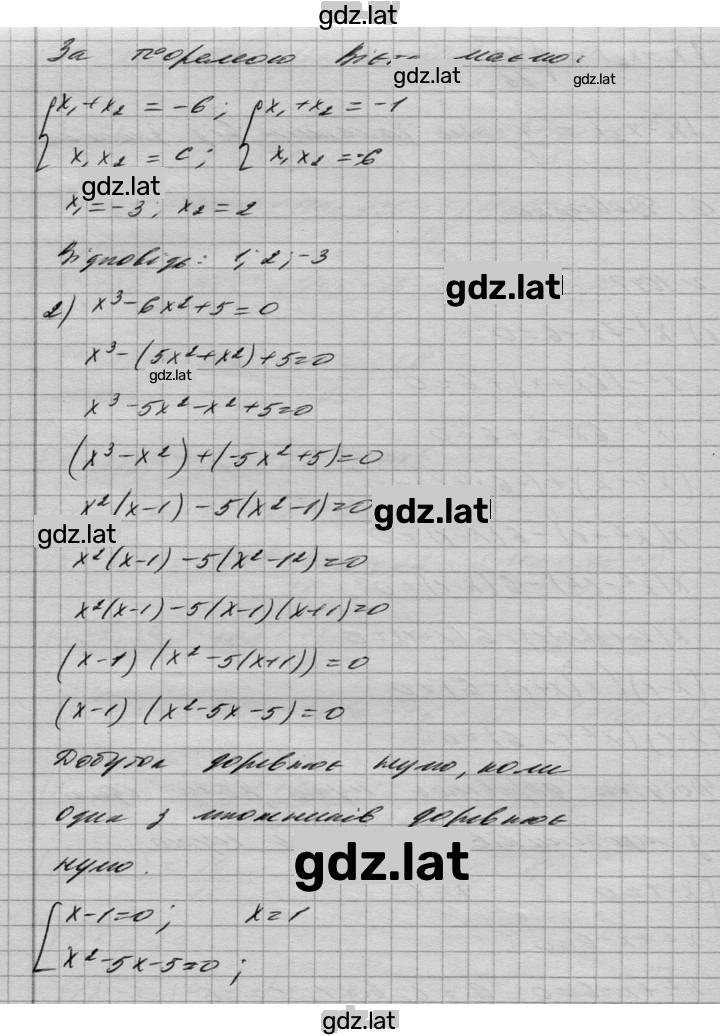 gdz.lat
За теоремою Вієта маємо:
gdz.lat gdz.lat
{x₁+x₂ = -6; {x₁+x₂ = -1
x₁x₂ = c; x₁x₂ = -6
gdz.lat
x₁ = -3; x₂ = 2
Відповідь: 1; 2; -3
gdz.lat
2) x³-6x²+5=0
x³-(5x²+x²)+5=0
gdz.lat
x³-5x²-x²+5=0
(x³-x²)+(-5x²+5)=0
x²(x-1)-5(x²-1)=0
gdz.lat
gdz.lat
x²(x-1)-5(x²-1²)=0
x²(x-1)-5(x-1)(x+1)=0
(x-1)(x²-5(x+1))=0
(x-1)(x²-5x-5)=0
Добуток дорівнює нулю, коли
один з множників дорівнює
нулю.
gdz.lat
[x-1=0; x=1
x²-5x-5=0;
gdz.lat